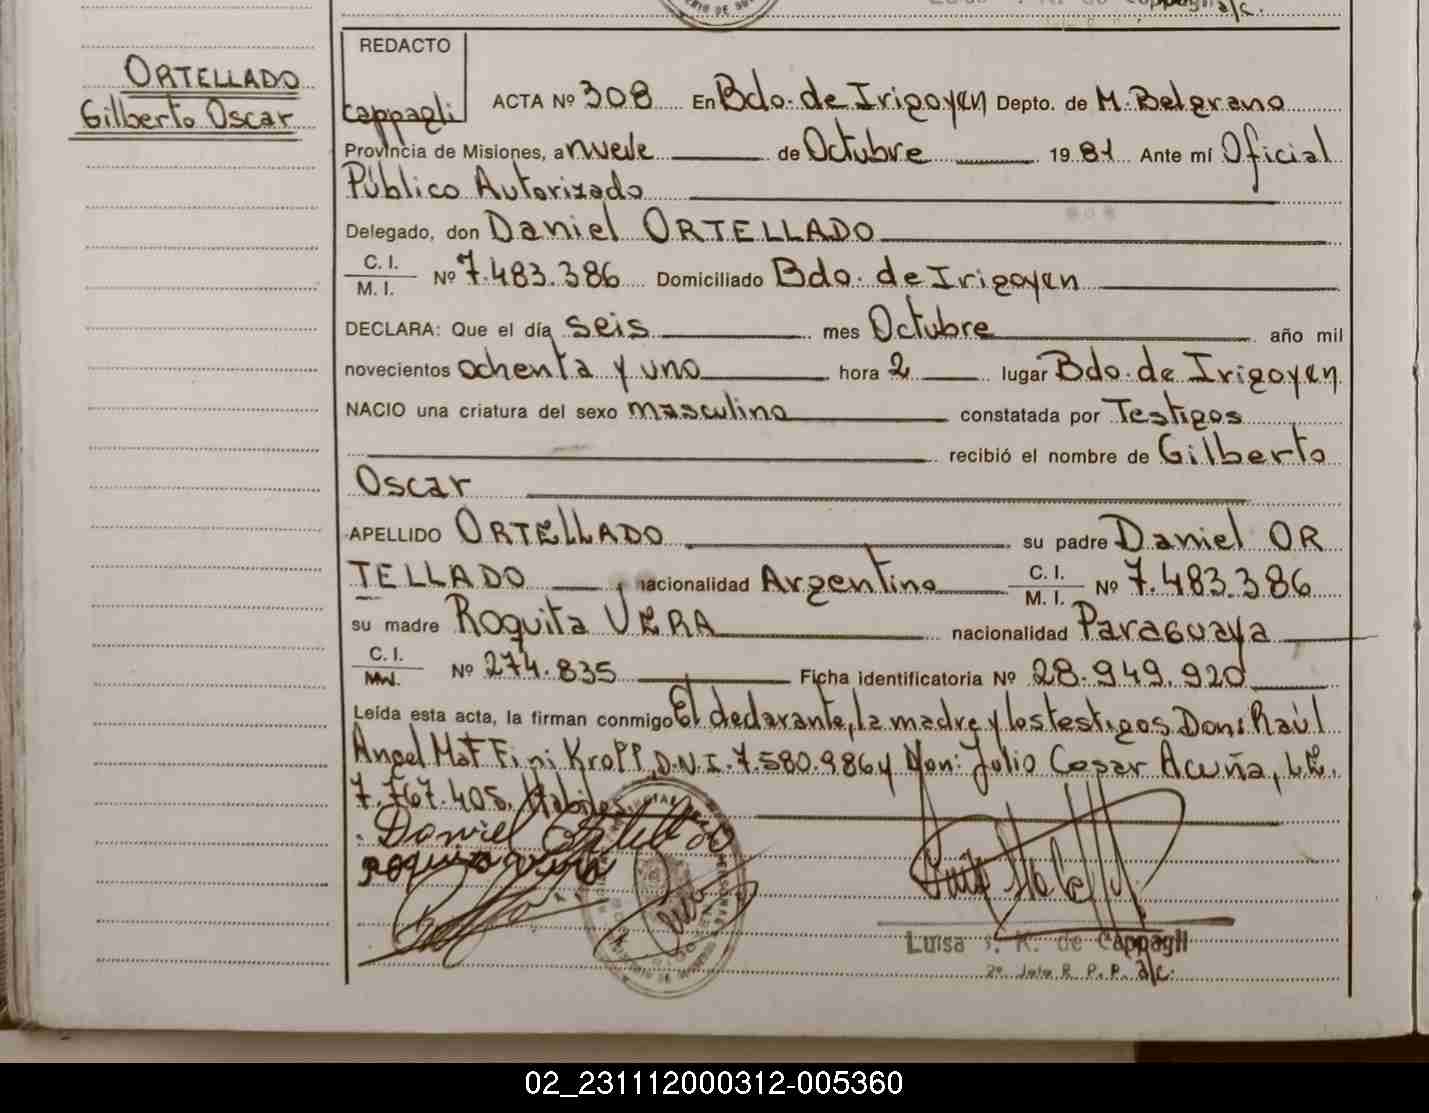 ORTELLADO
Gilberto Oscar
REDACTO
Cappagli
ACTA Nº 308 En Bdo. de Irigoyen Depto. de M. Belgrano
Provincia de Misiones, a nueve de Octubre 1981 Ante mí Oficial
Público Autorizado
Delegado, don Daniel ORTELLADO
C. I.
M. I. Nº 7.483.386 Domiciliado Bdo. de Irigoyen
DECLARA: Que el día seis mes Octubre año mil
novecientos ochenta y uno hora 2 lugar Bdo. de Irigoyen
NACIO una criatura del sexo masculino constatada por Testigos
recibió el nombre de Gilberto
Oscar
APELLIDO ORTELLADO su padre Daniel OR
TELLADO nacionalidad Argentino C. I. M. I. Nº 7.483.386
su madre Roquita VERA nacionalidad Paraguaya
C. I. Nº 274.835 Ficha identificatoria Nº 28.949.920
Leída esta acta, la firman conmigo El declarante, la madre y los testigos Don: Raúl
Angel Maffini Kropf, D.N.I. 7.580.986 y Don: Julio Cesar Acuña, L.E.
7.767.405. Habiles
Daniel Ortellado
Luisa K. de Cappagli
2º Jefe R. P. P. a/c.
02_231112000312-005360